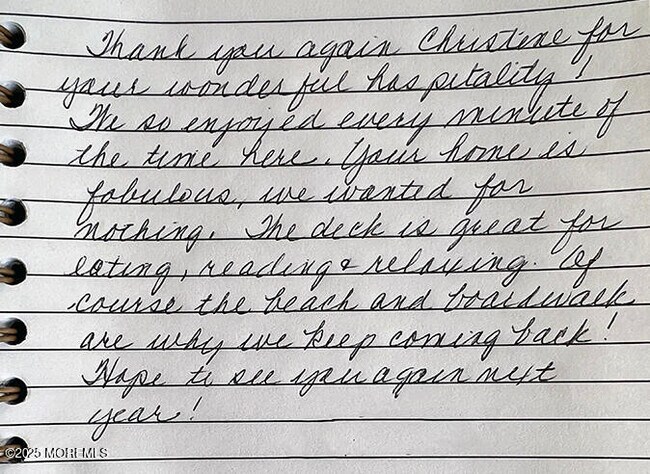 Thank you again Christine for
your wonderful hospitality!
We so enjoyed every minute of
the time here. Your home is
fabulous, we wanted for
nothing. The deck is great for
eating, reading & relaxing. Of
course the beach and boardwalk
are why we keep coming back!
Hope to see you again next
year!
©2025 MOREMLS